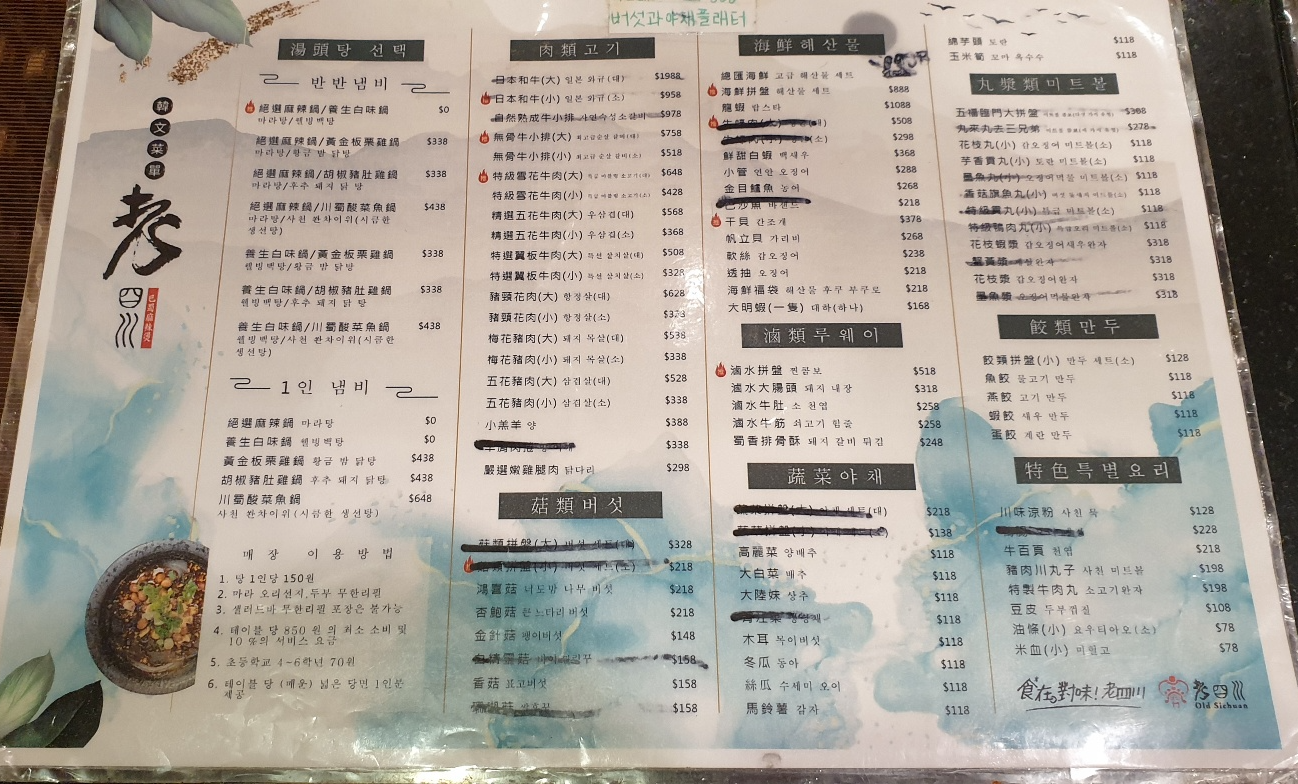 버섯과 야채플래터
韓文菜單
老四川
巴蜀麻辣燙
湯頭탕 선택
반반냄비
絕選麻辣鍋/養生白味鍋 $0
마라탕/웰빙백탕
絕選麻辣鍋/黃金板栗雞鍋 $338
마라탕/황금 밤 닭탕
絕選麻辣鍋/胡椒豬肚雞鍋 $338
마라탕/후추 돼지 닭 탕
絕選麻辣鍋/川蜀酸菜魚鍋 $438
마라탕/사천 쏸차이위(시큼한
생선탕)
養生白味鍋/黃金板栗雞鍋 $338
웰빙백탕/황금 밤 닭탕
養生白味鍋/胡椒豬肚雞鍋 $338
웰빙백탕/후추 돼지 닭 탕
養生白味鍋/川蜀酸菜魚鍋 $438
웰빙백탕/사천 쏸차이위(시큼한
생선탕)
1인 냄비
絕選麻辣鍋 마라탕 $0
養生白味鍋 웰빙백탕 $0
黃金板栗雞鍋 황금 밤 닭탕 $438
胡椒豬肚雞鍋 후추 돼지 닭탕 $438
川蜀酸菜魚鍋 $648
사천 쏸차이위(시큼한 생선탕)
매장 이용 방법
1. 탕 1인당 150원
2. 마라 오리선지,두부 무한리필
3. 샐러드바 무한리필 포장은 불가능
4. 테이블 당 850 원의 최소 소비 및
10 %의 서비스 요금
5. 초등학교 4~6학년 70원
6. 테이블 당 (매운) 넓은 당면 1인분
제공
肉類고기
日本和牛(大) 일본 와규(대) $1988
日本和牛(小) 일본 와규(소) $958
自然熟成牛小排 자연숙성소갈비 $978
無骨牛小排(大) 최고급순살 갈비(대) $758
無骨牛小排(小) 최고급 순살 갈비(소) $518
特級雪花牛肉(大) 특급 마블링 소고기(대) $648
特級雪花牛肉(小) 특급 마블링 소고기(소) $428
精選五花牛肉(大) 우삼겹(대) $568
精選五花牛肉(小) 우삼겹(소) $368
特選翼板牛肉(大) 특선 살치살(대) $508
特選翼板牛肉(小) 특선 살치살(소) $328
豬頸花肉(大) 항정살(대) $628
豬頸花肉(小) 항정살(소) $373
梅花豬肉(大) 돼지 목살(대) $538
梅花豬肉(小) 돼지 목살(소) $338
五花豬肉(大) 삼겹살(대) $528
五花豬肉(小) 삼겹살(소) $338
小羔羊 양 $388
$338
嚴選嫩雞腿肉 닭다리 $298
菇類버섯
菇類拼盤(大) 버섯 세트(대) $328
菇類拼盤(小) 버섯 세트(소) $218
鴻喜菇 너도밤 나무 버섯 $218
杏鮑菇 큰느타리버섯 $218
金針菇 팽이버섯 $148
$158
香菇 표고버섯 $158
珊瑚菇 $158
海鮮해산물
總匯海鮮 고급 해산물 세트
海鮮拼盤 해산물 세트 $888
龍蝦 랍스타 $1088
$508
$298
鮮甜白蝦 백새우 $368
小管 연안 오징어 $288
金目鱸魚 농어 $268
巴沙魚 바센드 $218
干貝 간조개 $378
帆立貝 가리비 $268
軟絲 갑오징어 $238
透抽 오징어 $218
海鮮福袋 해산물 후쿠 부쿠로 $218
大明蝦(一隻) 대하(하나) $168
滷類루웨이
滷水拼盤 찐콤보 $518
滷水大腸頭 돼지 내장 $318
滷水牛肚 소 천엽 $258
滷水牛筋 쇠고기 힘줄 $258
蜀香排骨酥 돼지 갈비 튀김 $248
蔬菜야채
蔬菜拼盤(大) 야채 세트(대) $218
蔬菜拼盤(小) 야채 세트(소) $138
高麗菜 양배추 $118
大白菜 배추 $118
大陸妹 상추 $118
青江菜 청경채 $118
木耳 목이버섯 $118
冬瓜 동아 $118
絲瓜 수세미 오이 $118
馬鈴薯 감자 $118
綿芋頭 토란 $118
玉米筍 꼬마 옥수수 $118
丸漿類미트볼
五福臨門大拼盤 $368
丸來丸去三兄弟 $278
花枝丸(小) 갑오징어 미트볼(소) $118
芋香貢丸(小) 토란 미트볼(소) $118
墨魚丸(小) 오징어먹물 미트볼(소) $118
香菇旗魚丸(小) $118
特級貢丸(小) 특급 미트볼(소) $118
特級鴨肉丸(小) 특급오리 미트볼(소) $118
花枝蝦漿 갑오징어새우완자 $318
蟹黃漿 게알완자 $318
花枝漿 갑오징어완자 $318
墨魚漿 오징어먹물완자 $318
餃類만두
餃類拼盤(小) 만두 세트(소) $128
魚餃 물고기 만두 $118
燕餃 고기 만두 $118
蝦餃 새우 만두 $118
蛋餃 계란 만두 $118
特色특별요리
川味涼粉 사천 묵 $128
$228
牛百頁 천엽 $218
豬肉川丸子 사천 미트볼 $198
特製牛肉丸 소고기완자 $198
豆皮 두부껍질 $108
油條(小) 요우티아오(소) $78
米血(小) 미힐고 $78
食在對味!老四川
老四川
Old Sichuan